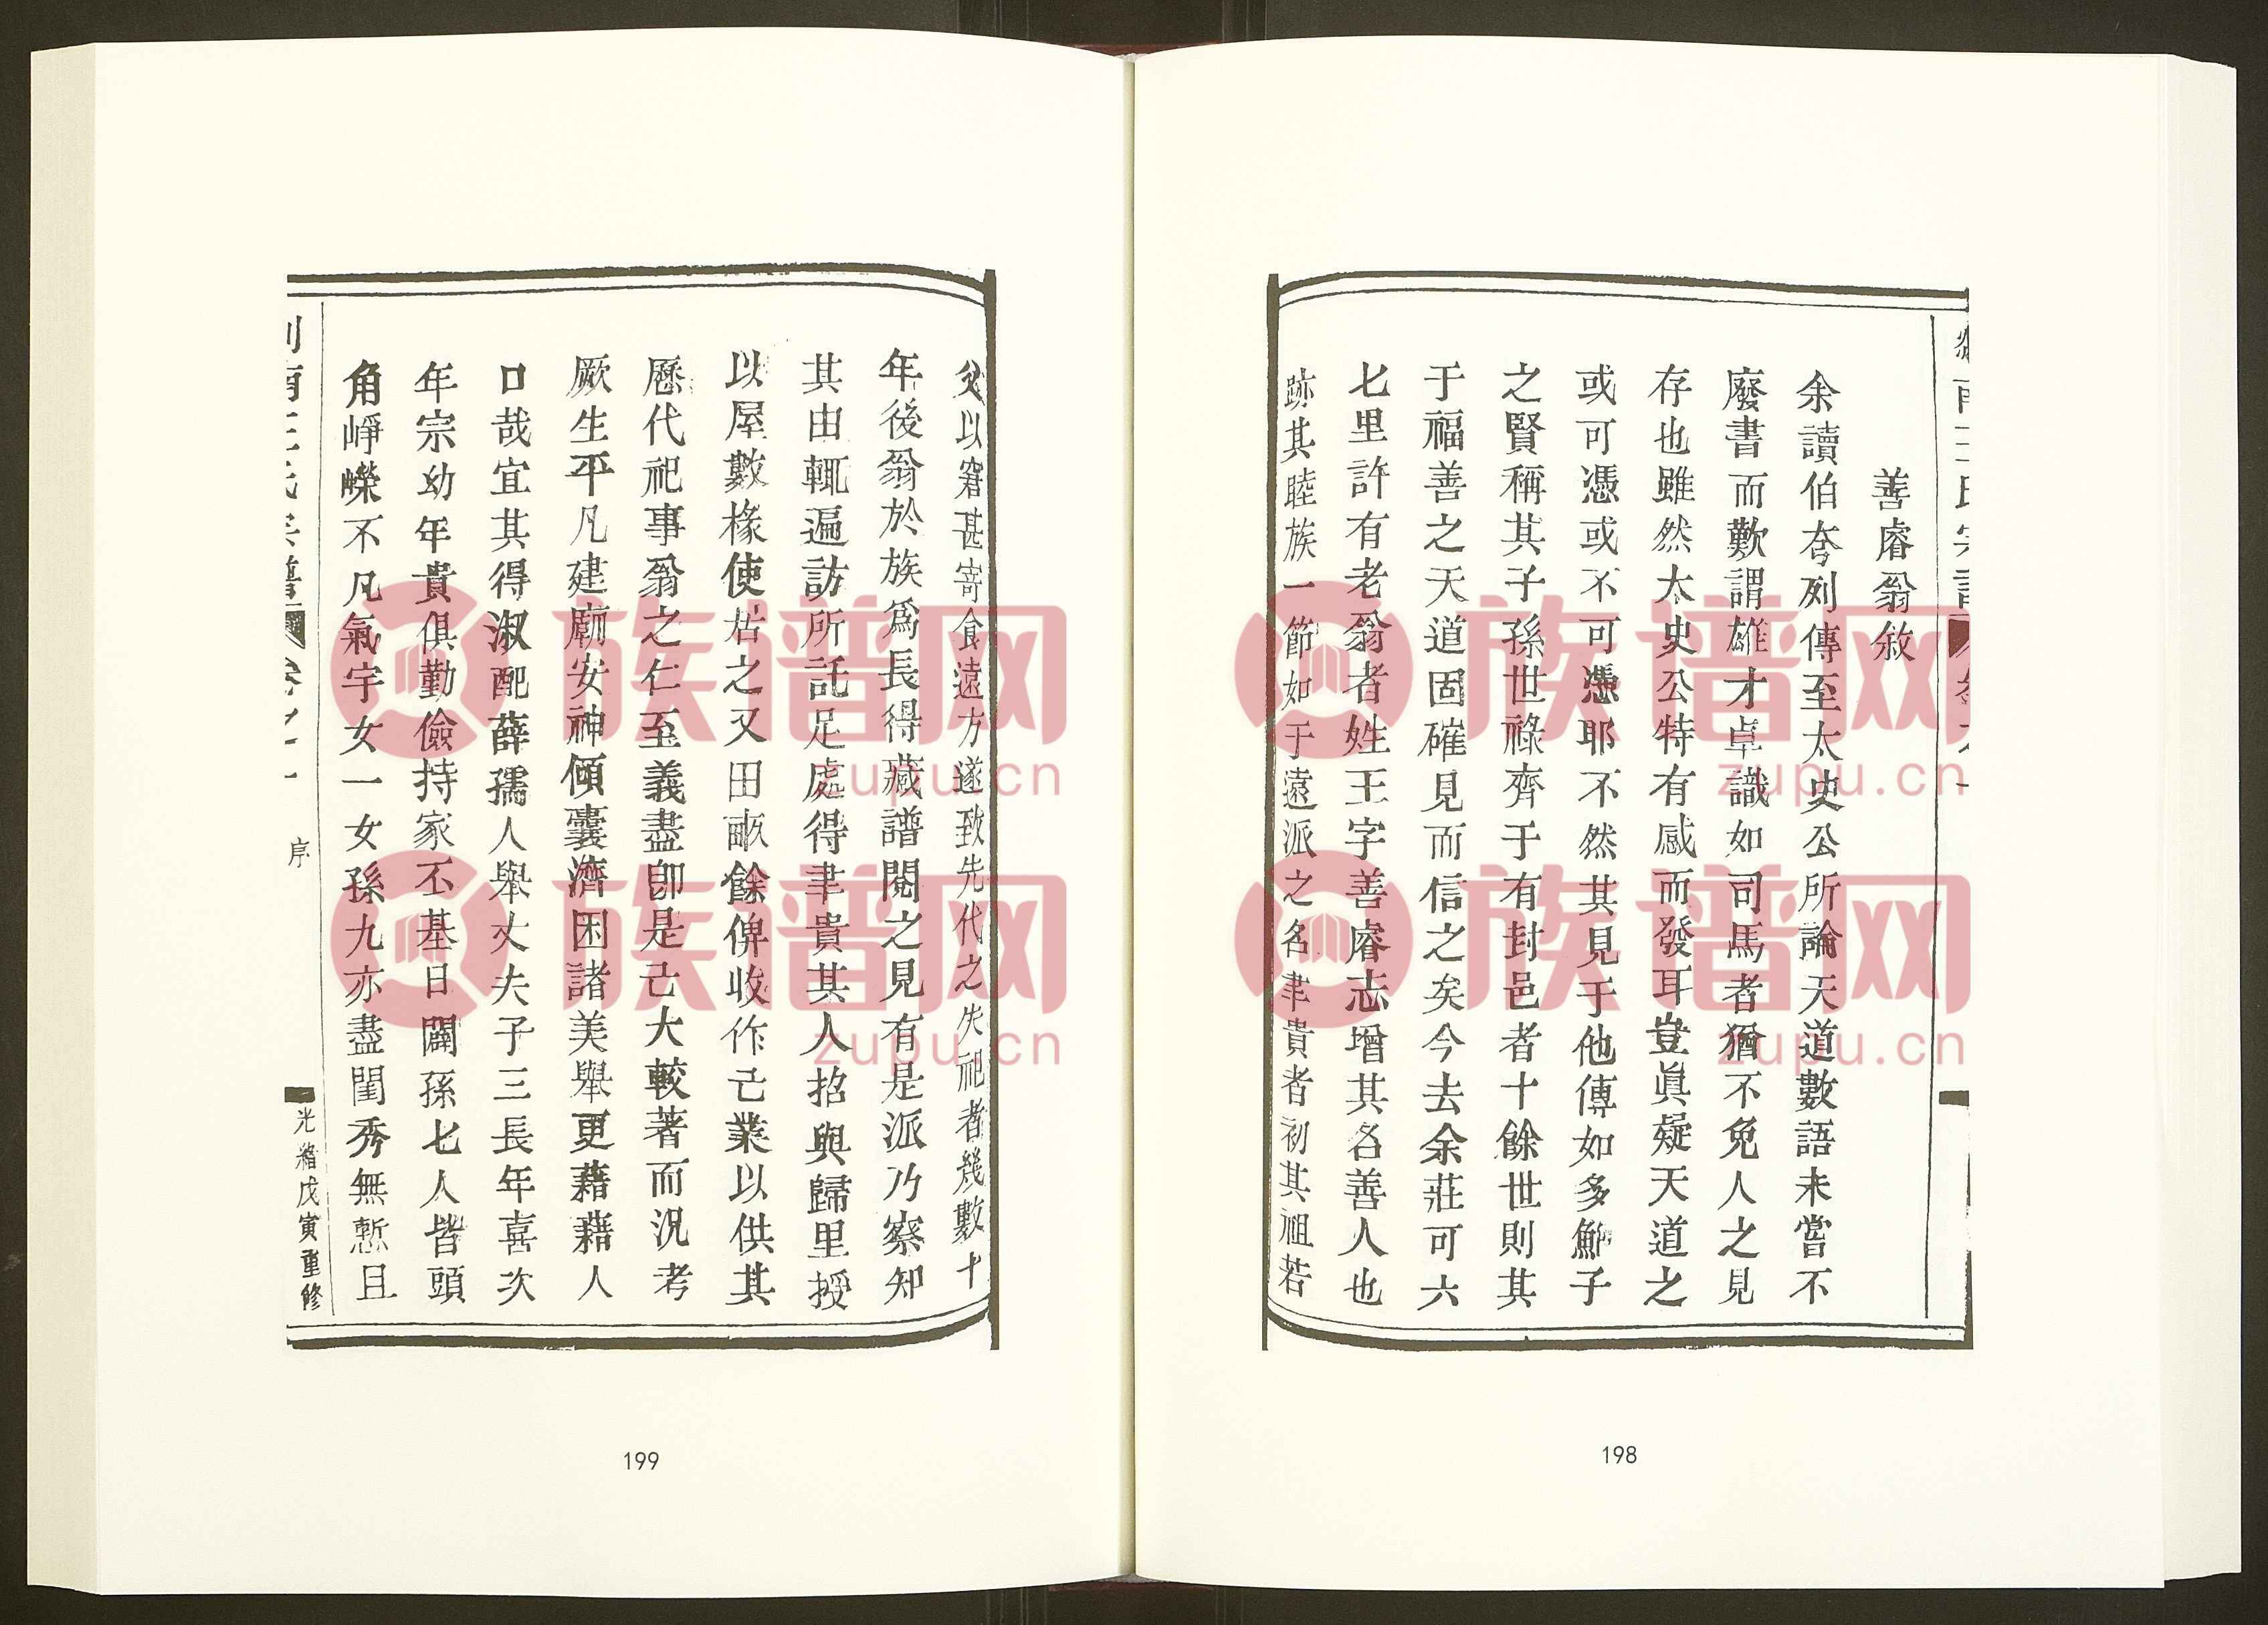 善睿翁敘
余讀伯夸列傳至太史公所論天道數語未嘗不
廢書而歎謂雄才卓識如司馬者猶不免人之見
存也雖然太史公特有感而發耳豈眞疑天道之
或可憑或不可憑耶不然其見于他傳如多鄉子
之賢稱其子孫世祿齊于有封邑者十餘世則其
于福善之天道固確見而信之矣今去余莊可六
七里許有老翁者姓王字善睿志增其名善人也
跡其睦族一節如于遠派之名聿貴者初其祖若
198
父以窘甚寄食遠方遂致先代之失祀者幾數十
年後翁於族爲長得藏譜閱之見有是派乃察知
其由輒遍訪所託足處得聿貴其人招與歸里授
以屋數椽使居之又田畝餘俾收作己業以供其
歷代祀事翁之仁至義盡卽是己大較著而況考
厥生平凡建廟安神傾囊濟困諸美舉更藉藉人
口哉宜其得淑配薛孺人舉丈夫子三長年喜次
年宗幼年貴俱勤儉持家丕基日闢孫七人皆頭
角崢嶸不凡氣宇女一女孫九亦盡閨秀無慙且
南王氏宗譜 卷之一 序 光緒戊寅重修
199
族谱网
zupu.cn
族谱网
zupu.cn
族谱网
zupu.cn
族谱网
zupu.cn